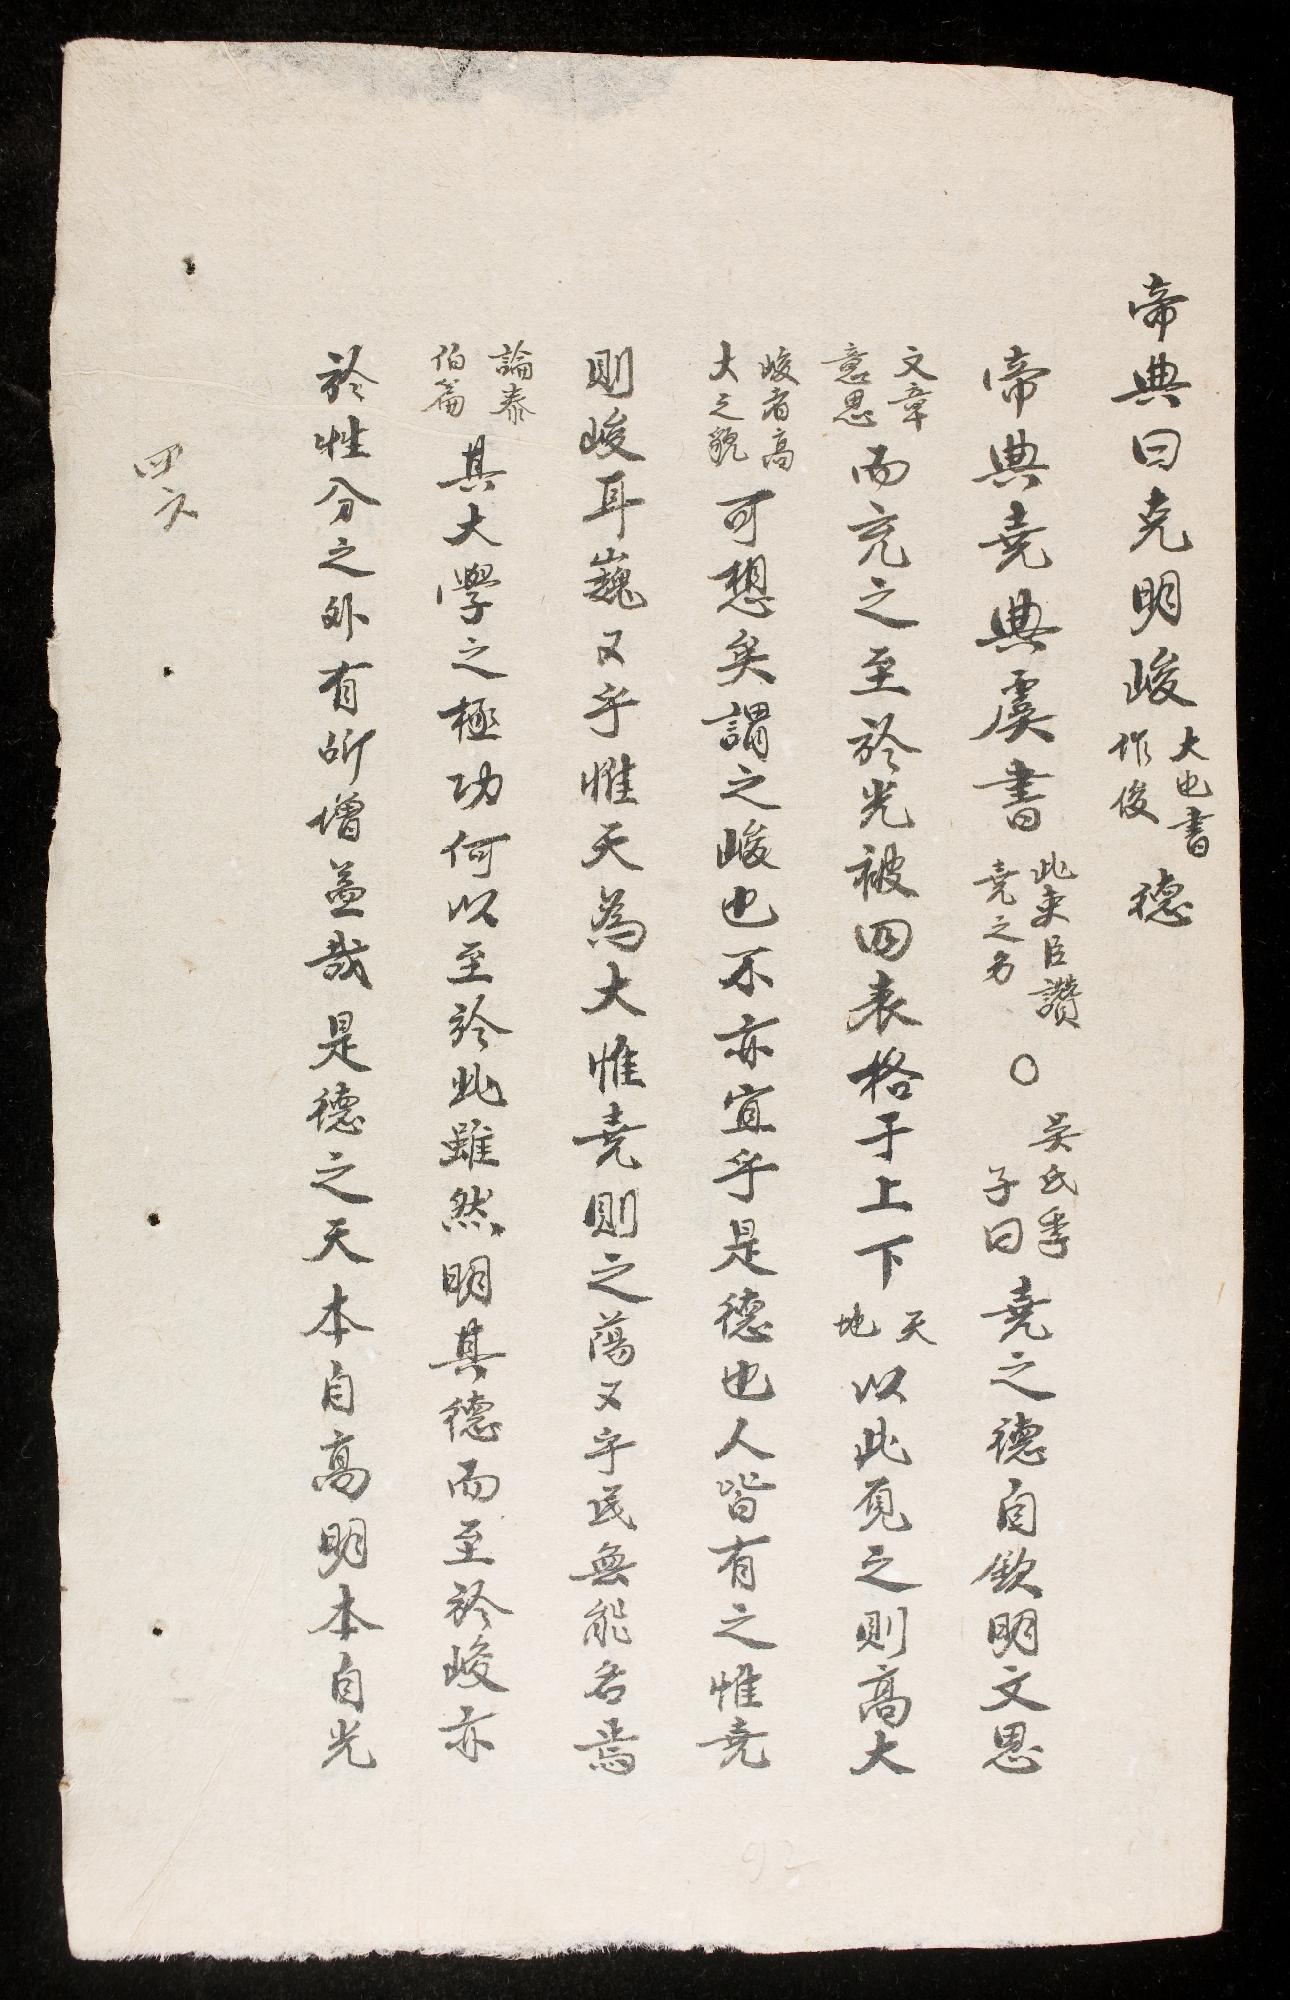 帝典曰克明峻大也書作俊德
帝典堯典虞書此史臣讚堯之有○吳氏季子曰堯之德自欽明文思
文章意思而充之至於光被四表格于上下天地以此覓之則高大
峻者高大之貌可想矣謂之峻也不亦宜乎是德也人皆有之惟堯
則峻耳巍又乎惟天為大惟堯則之蕩又乎民無能名焉
論泰伯篇其大學之極功何以至於此雖然明其德而至於峻亦
於性分之外有所增益哉是德之天本自高明本自光
四六
92